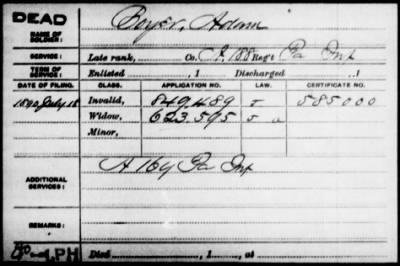 DEAD
NAME OF SOLDIER: Boyer, Adam
SERVICE: Late rank, Co. C, 188 Reg't Pa Inf
TERM OF SERVICE: Enlisted , 1 Discharged , 1
DATE OF FILING. CLASS. APPLICATION NO. LAW. CERTIFICATE NO.
1890 July 18 Invalid, 849.489 585000
Widow, 623.595
Minor,
ADDITIONAL SERVICES: A 169 Pa Inf
REMARKS:
Died , 1 , at
1.PH